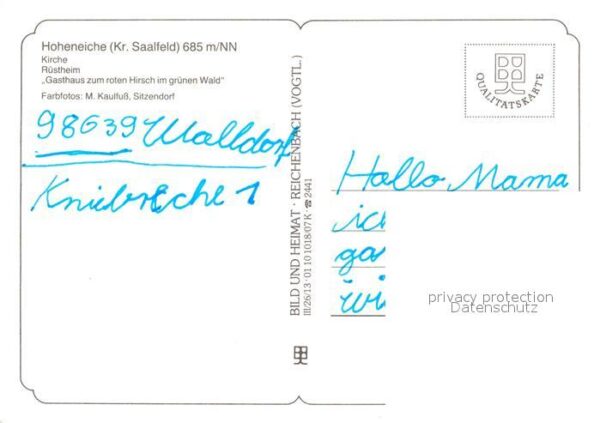 Hoheneiche (Kr. Saalfeld) 685 m/NN
Kirche
Rüstheim
„Gasthaus zum roten Hirsch im grünen Wald"
Farbfotos: M. Kaulfuß, Sitzendorf
98639 Walldorf
BILD UND HEIMAT · REICHENBACH (VOGTL.)
III/26/13 · 01 10 1018/07 K · ☎ 2441
QUALITÄTSKARTE
Hallo Mama
privacy protection
Datenschutz